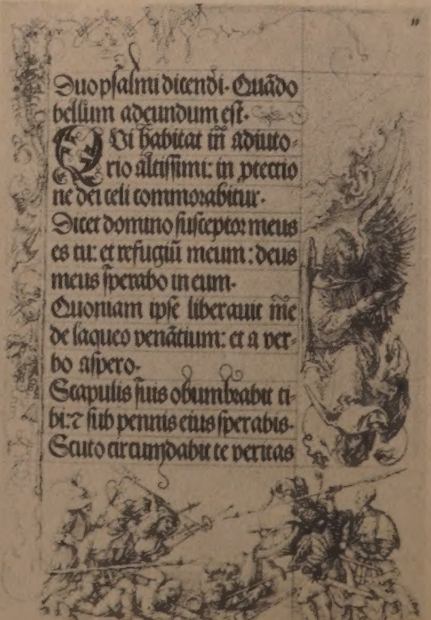 11
Duo psalmi dicendi. Quādo
bellum adeundum est.
Qvi habitat in̄ adiuto-
rio altissimi: in ꝓtectio
ne dei celi commorabitur.
Dicet domino susceptor meus
es tu: et refugiū meum: deus
meus sperabo in eum.
Quoniam ipse liberauit me
de laqueo venātium: et a ver-
bo aspero.
Scapulis suis obumbrabit ti-
bi: ⁊ sub pennis eius sperabis.
Scuto circumdabit te veritas